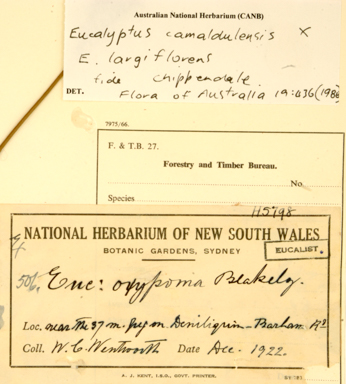 Australian National Herbarium (CANB)
Eucalyptus camaldulensis x
E. largiflorens
fide Chippendale.
DET. Flora of Australia 19:436 (1988
7975/66.
F. & T.B. 27.
Forestry and Timber Bureau.
No.
Species
115798
NATIONAL HERBARIUM OF NEW SOUTH WALES
BOTANIC GARDENS, SYDNEY
EUCALIST.
Euc: oxypoma Blakely.
Loc. near the 37 m. peg on Deniliquin-Barham Rd
Coll. W. C. Wentworth Date Dec. 1922.
A. J. KENT, I.S.O., GOVT. PRINTER.